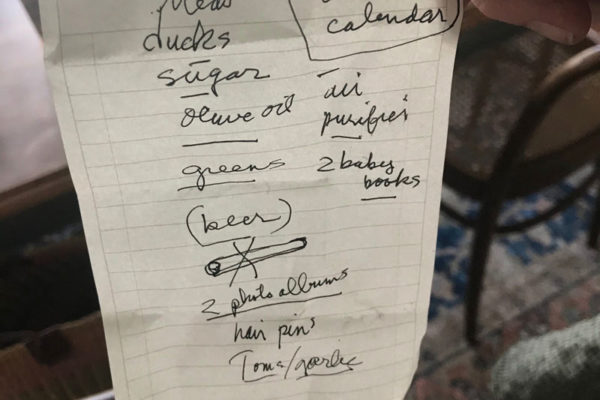 ducks
sugar
olive oil
greens
(beer)
2 photo albums
hair pins
Toms/garlic
calendar
air
purifier
2 baby
books